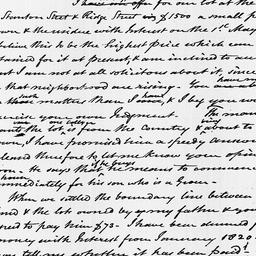 I have an offer for our lot at the
Stanton Street & Ridge Street of $1500 a small p
own & the residue with Interest on the 1st May
believe this to be the highest price which can
btained for it at present, & am inclined to acc
but I am not at all solicitous about it, since
that neighbourhood are rising. You
such matters than I have, & I beg you w
exercise your own Judgment. The man
wants the lot is from the Country & about to
own, I have promised him a speedy answer
pleased therefore to let me know your opin
on. He says that he means to commence
house immediately for his son who is a Grocer.
When we settled the boundary line between
& the lot owned by my father & you
agreed to pay him $75. I have been dunned f
money with Interest from January 1820.
you tell me whether it has been paid?